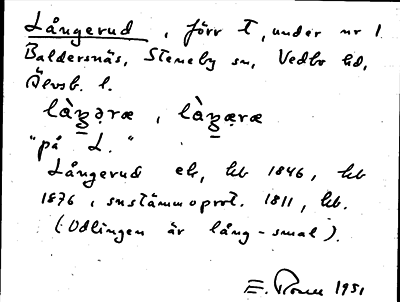 Långerud, förr T, under nr 1
Baldersnäs, Steneby sn, Vedbo hd,
Älvsb. l.
"på L."
Långerud ek, hb 1846, hb
1876, snstämmoprot. 1811, hb.
(Odlingen är lång-smal).
1951